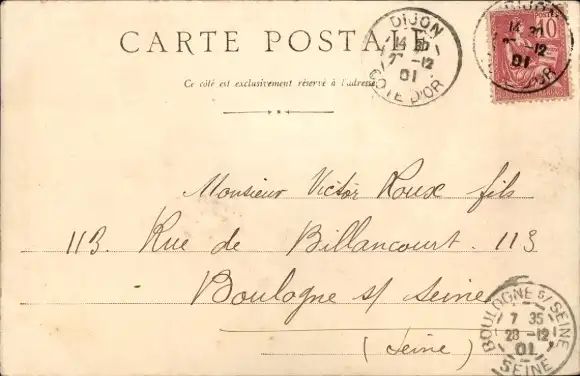 CARTE POSTALE
Ce côté est exclusivement réservé à l'adresse
DIJON
14 30
12
01
COTE D'OR
DIJON
14 30
12
01
D'OR
POSTES
10
Monsieur Victor Roux fils
113. Rue de Billancourt. 113
Boulogne s/ Seine
(Seine)
BOULOGNE S/ SEINE
7 35
28 -12
01
SEINE